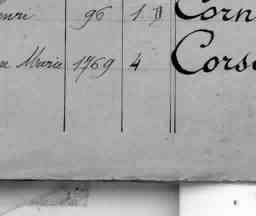 enri 96 1 D Corn
e Marie 1769 4 Cors